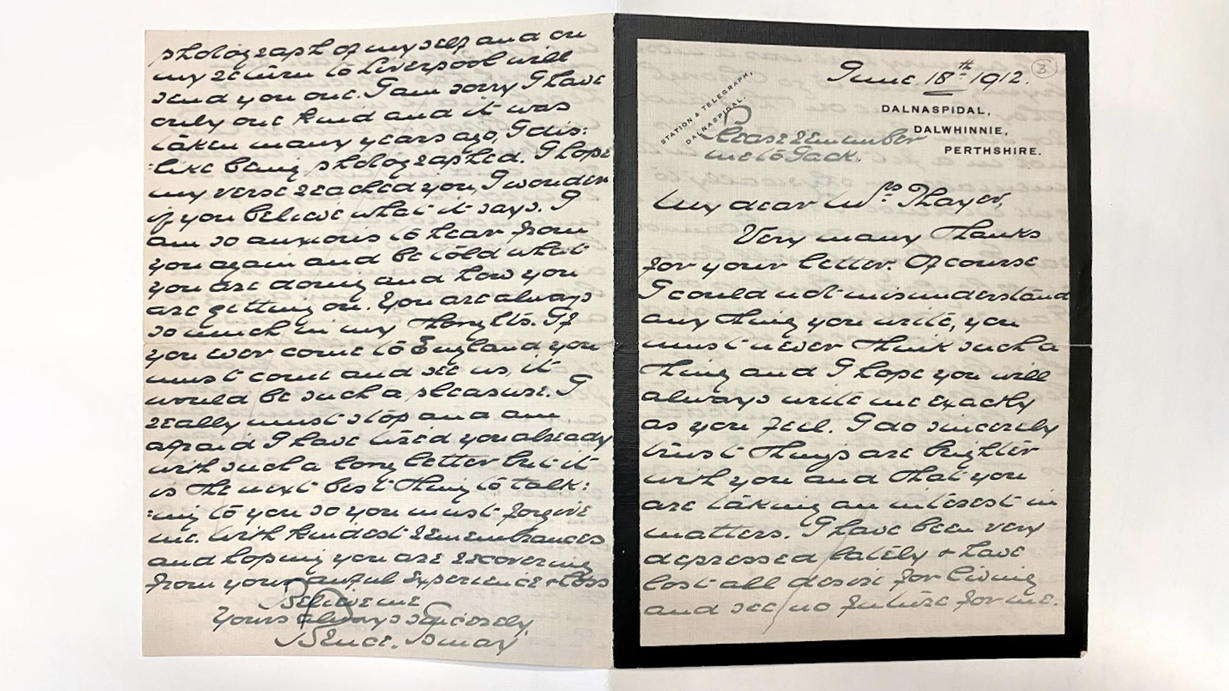 June. 18th 1912.
3
STATION & TELEGRAPH,
DALNASPIDAL.
DALNASPIDAL,
DALWHINNIE,
PERTHSHIRE.
Please remember
me to Jack.
My dear Mrs Thayer,
Very many Thanks
for your letter. Of course
I could not misunderstand
any thing you write, you
must never think such a
thing and I hope you will
always write me exactly
as you feel. I do sincerely
trust things are brighter
with you and that you
are taking an interest in
matters. I have been very
depressed lately & have
lost all desire for living
and see no future for me.
photograph of myself and on
my return to Liverpool will
send you one. I am sorry I have
only one kind and it was
taken many years ago, I dis:
:like being photographed. I hope
my verse reached you, I wonder
if you believe what it says. I
am so anxious to hear from
you again and be told what
you are doing and how you
are getting on. You are always
so much in my thoughts. If
you ever come to England you
must come and see us, it
would be such a pleasure. I
really must stop and am
afraid I have tired you already
with such a long letter but it
is the next best thing to talk:
:ing to you so you must forgive
me. With kindest remembrances
and hoping you are recovering
from your awful experience & loss
Believe me
Yours always sincerely,
Bruce. Ismay